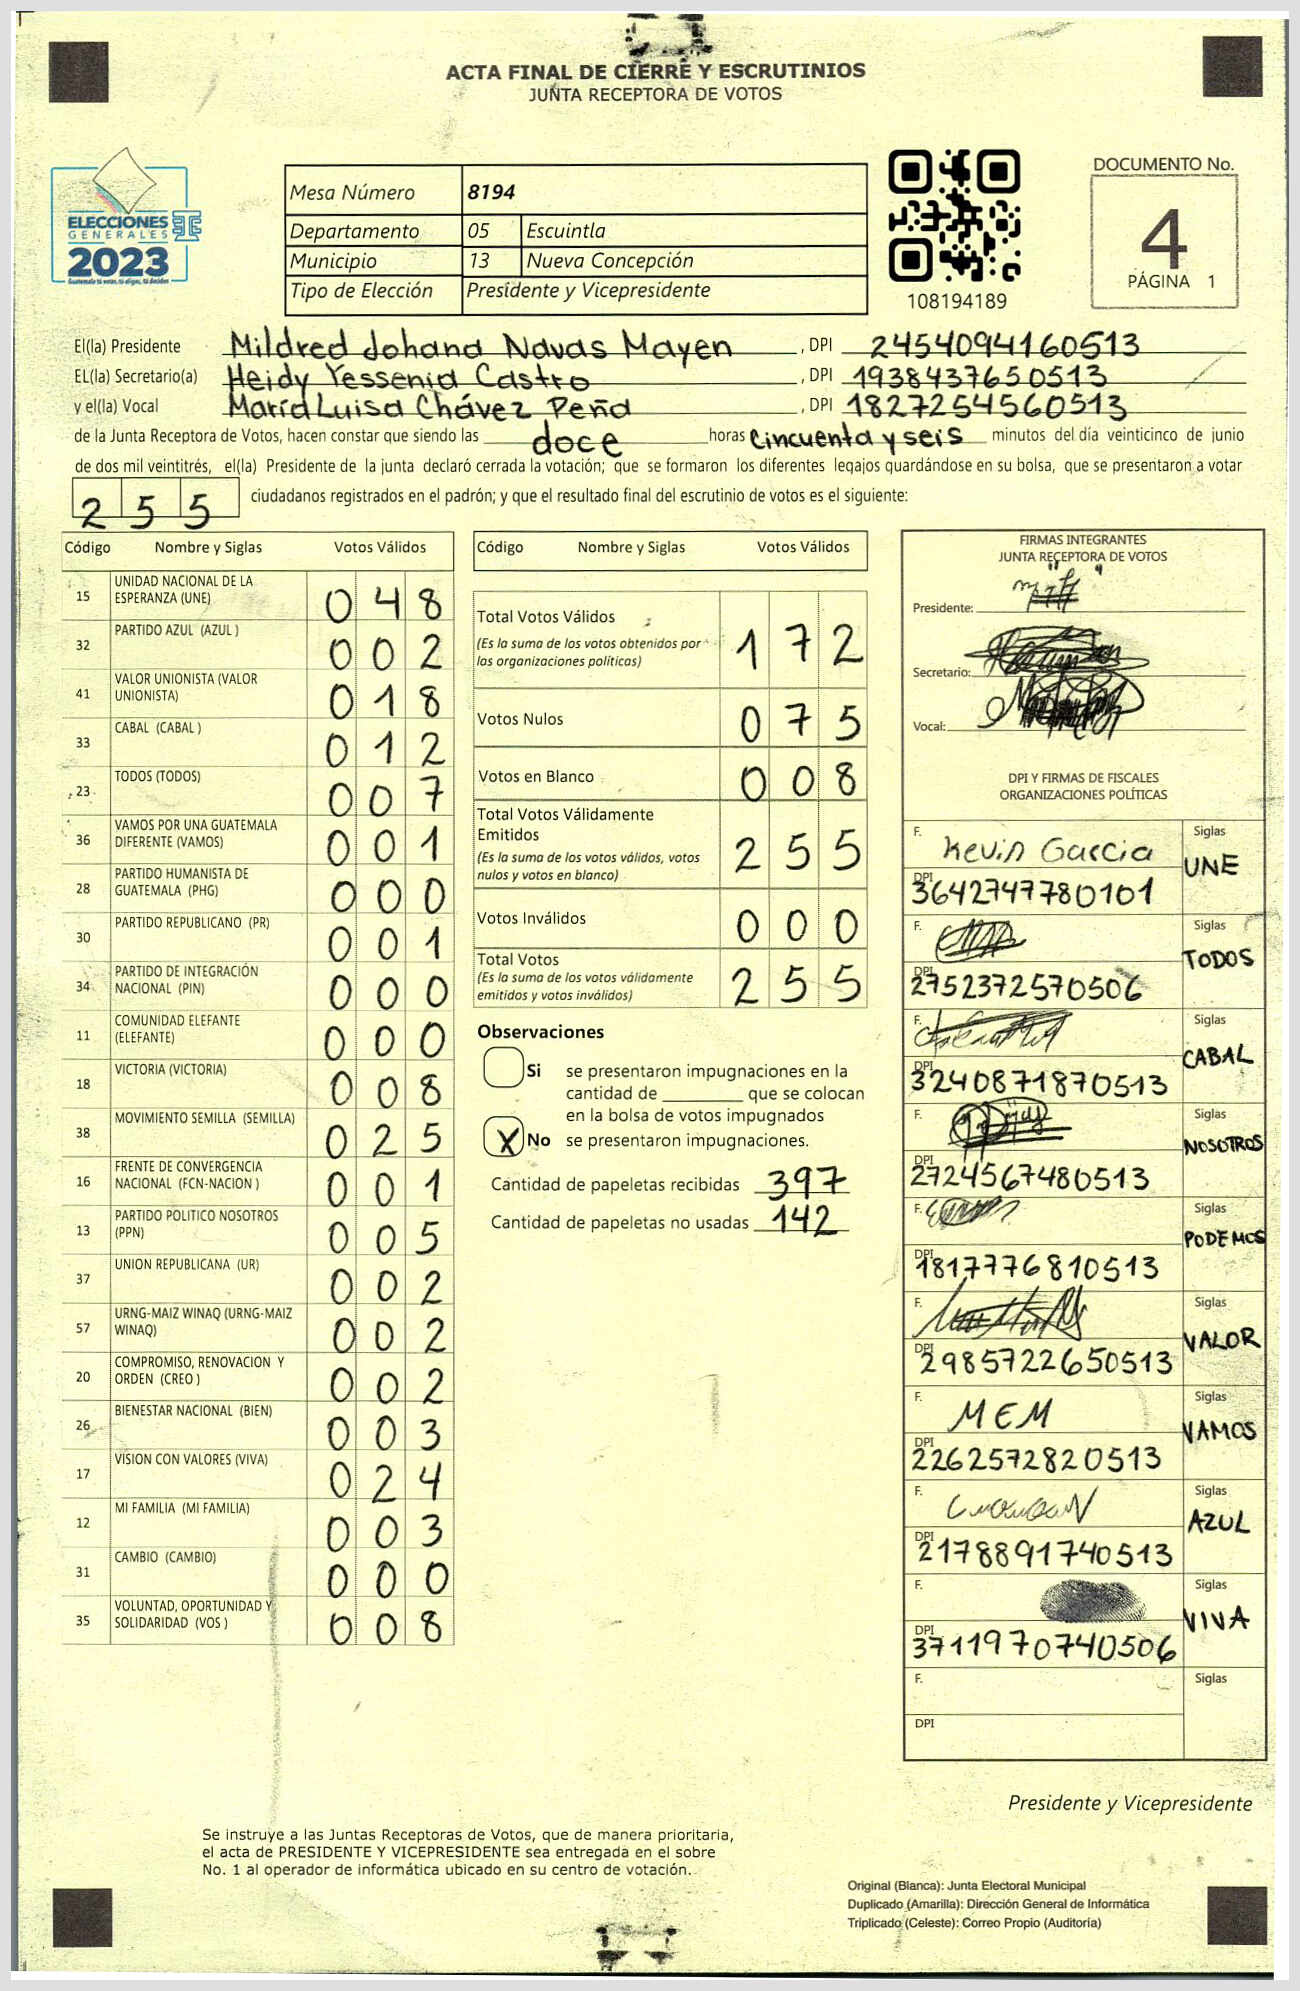 ACTA FINAL DE CIERRE Y ESCRUTINIOS
JUNTA RECEPTORA DE VOTOS
ELECCIONES
GENERALES
2023
Guatemala tú votas, tú eliges, tú decides
Mesa Número 8194
Departamento 05 Escuintla
Municipio 13 Nueva Concepción
Tipo de Elección Presidente y Vicepresidente
108194189
DOCUMENTO No.
4
PÁGINA 1
El(la) Presidente Mildred Johana Navas Mayen , DPI 2454094160513
EL(la) Secretario(a) Heidy Yessenia Castro , DPI 1938437650513
y el(la) Vocal María Luisa Chávez Peña , DPI 1827254560513
de la Junta Receptora de Votos, hacen constar que siendo las doce horas cincuenta y seis minutos del día veinticinco de junio
de dos mil veintitrés, el(la) Presidente de la junta declaró cerrada la votación; que se formaron los diferentes legajos guardándose en su bolsa, que se presentaron a votar
255 ciudadanos registrados en el padrón; y que el resultado final del escrutinio de votos es el siguiente:
Código Nombre y Siglas Votos Válidos
15 UNIDAD NACIONAL DE LA
ESPERANZA (UNE) 048
32 PARTIDO AZUL (AZUL ) 002
41 VALOR UNIONISTA (VALOR
UNIONISTA) 018
33 CABAL (CABAL ) 012
23 TODOS (TODOS) 007
36 VAMOS POR UNA GUATEMALA
DIFERENTE (VAMOS) 001
28 PARTIDO HUMANISTA DE
GUATEMALA (PHG) 000
30 PARTIDO REPUBLICANO (PR) 001
34 PARTIDO DE INTEGRACIÓN
NACIONAL (PIN) 000
11 COMUNIDAD ELEFANTE
(ELEFANTE) 000
18 VICTORIA (VICTORIA) 008
38 MOVIMIENTO SEMILLA (SEMILLA) 025
16 FRENTE DE CONVERGENCIA
NACIONAL (FCN-NACION ) 001
13 PARTIDO POLITICO NOSOTROS
(PPN) 005
37 UNION REPUBLICANA (UR) 002
57 URNG-MAIZ WINAQ (URNG-MAIZ
WINAQ) 002
20 COMPROMISO, RENOVACION Y
ORDEN (CREO ) 002
26 BIENESTAR NACIONAL (BIEN) 003
17 VISION CON VALORES (VIVA) 024
12 MI FAMILIA (MI FAMILIA) 003
31 CAMBIO (CAMBIO) 000
35 VOLUNTAD, OPORTUNIDAD Y
SOLIDARIDAD (VOS ) 008
Código Nombre y Siglas Votos Válidos
Total Votos Válidos
(Es la suma de los votos obtenidos por
las organizaciones políticas) 172
Votos Nulos 075
Votos en Blanco 008
Total Votos Válidamente
Emitidos
(Es la suma de los votos válidos, votos
nulos y votos en blanco) 255
Votos Inválidos 000
Total Votos
(Es la suma de los votos válidamente
emitidos y votos inválidos) 255
Observaciones
Si se presentaron impugnaciones en la
cantidad de ________ que se colocan
en la bolsa de votos impugnados
X No se presentaron impugnaciones.
Cantidad de papeletas recibidas 397
Cantidad de papeletas no usadas 142
FIRMAS INTEGRANTES
JUNTA RECEPTORA DE VOTOS
Presidente:
Secretario:
Vocal:
DPI Y FIRMAS DE FISCALES
ORGANIZACIONES POLÍTICAS
F. Kevin Garcia Siglas
DPI 3642747780101 UNE
F. Siglas
DPI 2752372570506 TODOS
F. Siglas
DPI 3240871870513 CABAL
F. Siglas
DPI 2724567480513 NOSOTROS
F. Siglas
DPI 1817776810513 PODEMOS
F. Siglas
DPI 2985722650513 VALOR
F. MEM Siglas
DPI 2262572820513 VAMOS
F. Siglas
DPI 2178891740513 AZUL
F. Siglas
DPI 3711970740506 VIVA
F. Siglas
DPI
Presidente y Vicepresidente
Se instruye a las Juntas Receptoras de Votos, que de manera prioritaria,
el acta de PRESIDENTE Y VICEPRESIDENTE sea entregada en el sobre
No. 1 al operador de informática ubicado en su centro de votación.
Original (Blanca): Junta Electoral Municipal
Duplicado (Amarilla): Dirección General de Informática
Triplicado (Celeste): Correo Propio (Auditoría)